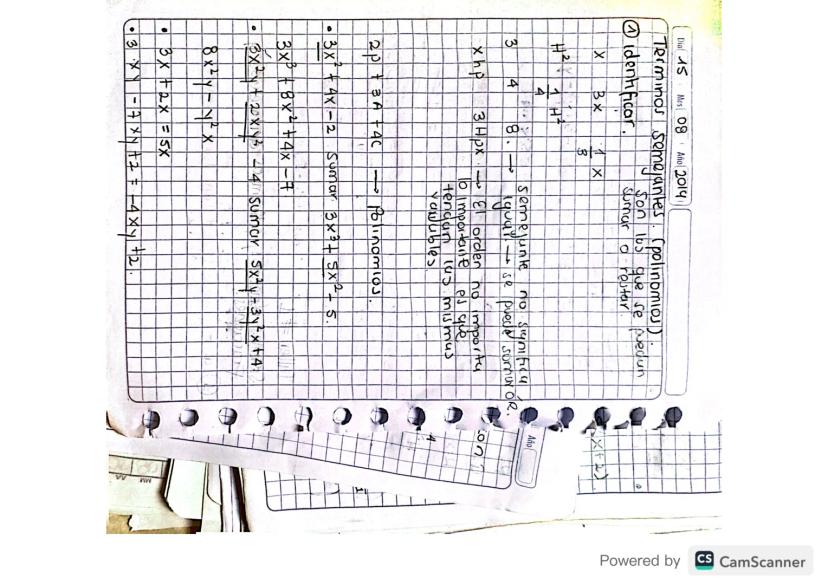 Día 15 Mes 08 Año 2014
Terminos semejantes. (polinomios).
① identificar. y son los que se pueden
sumar o restar.
x 3x 1/3 x
H² 1/4 H²
3 4 8. → semejante no significa
igual → se puede sumar
xhp 3Hpx → El orden no importa
lo importante es que
tengan las mismas
variables
2p + 3A + 4c → Polinomios.
• 3x² + 4x - 2 Sumar 3x³ + 5x² - 5.
3x³ + 8x² + 4x - 7
• 3x²y + 2xy² - 4 Sumar 5x²y - 3y²x + 4
8x²y - y²x
• 3x + 2x = 5x
• 3xy - 7xy + 2 = -4xy + 2.
Año
on
4
x + 2)
Powered by CS CamScanner